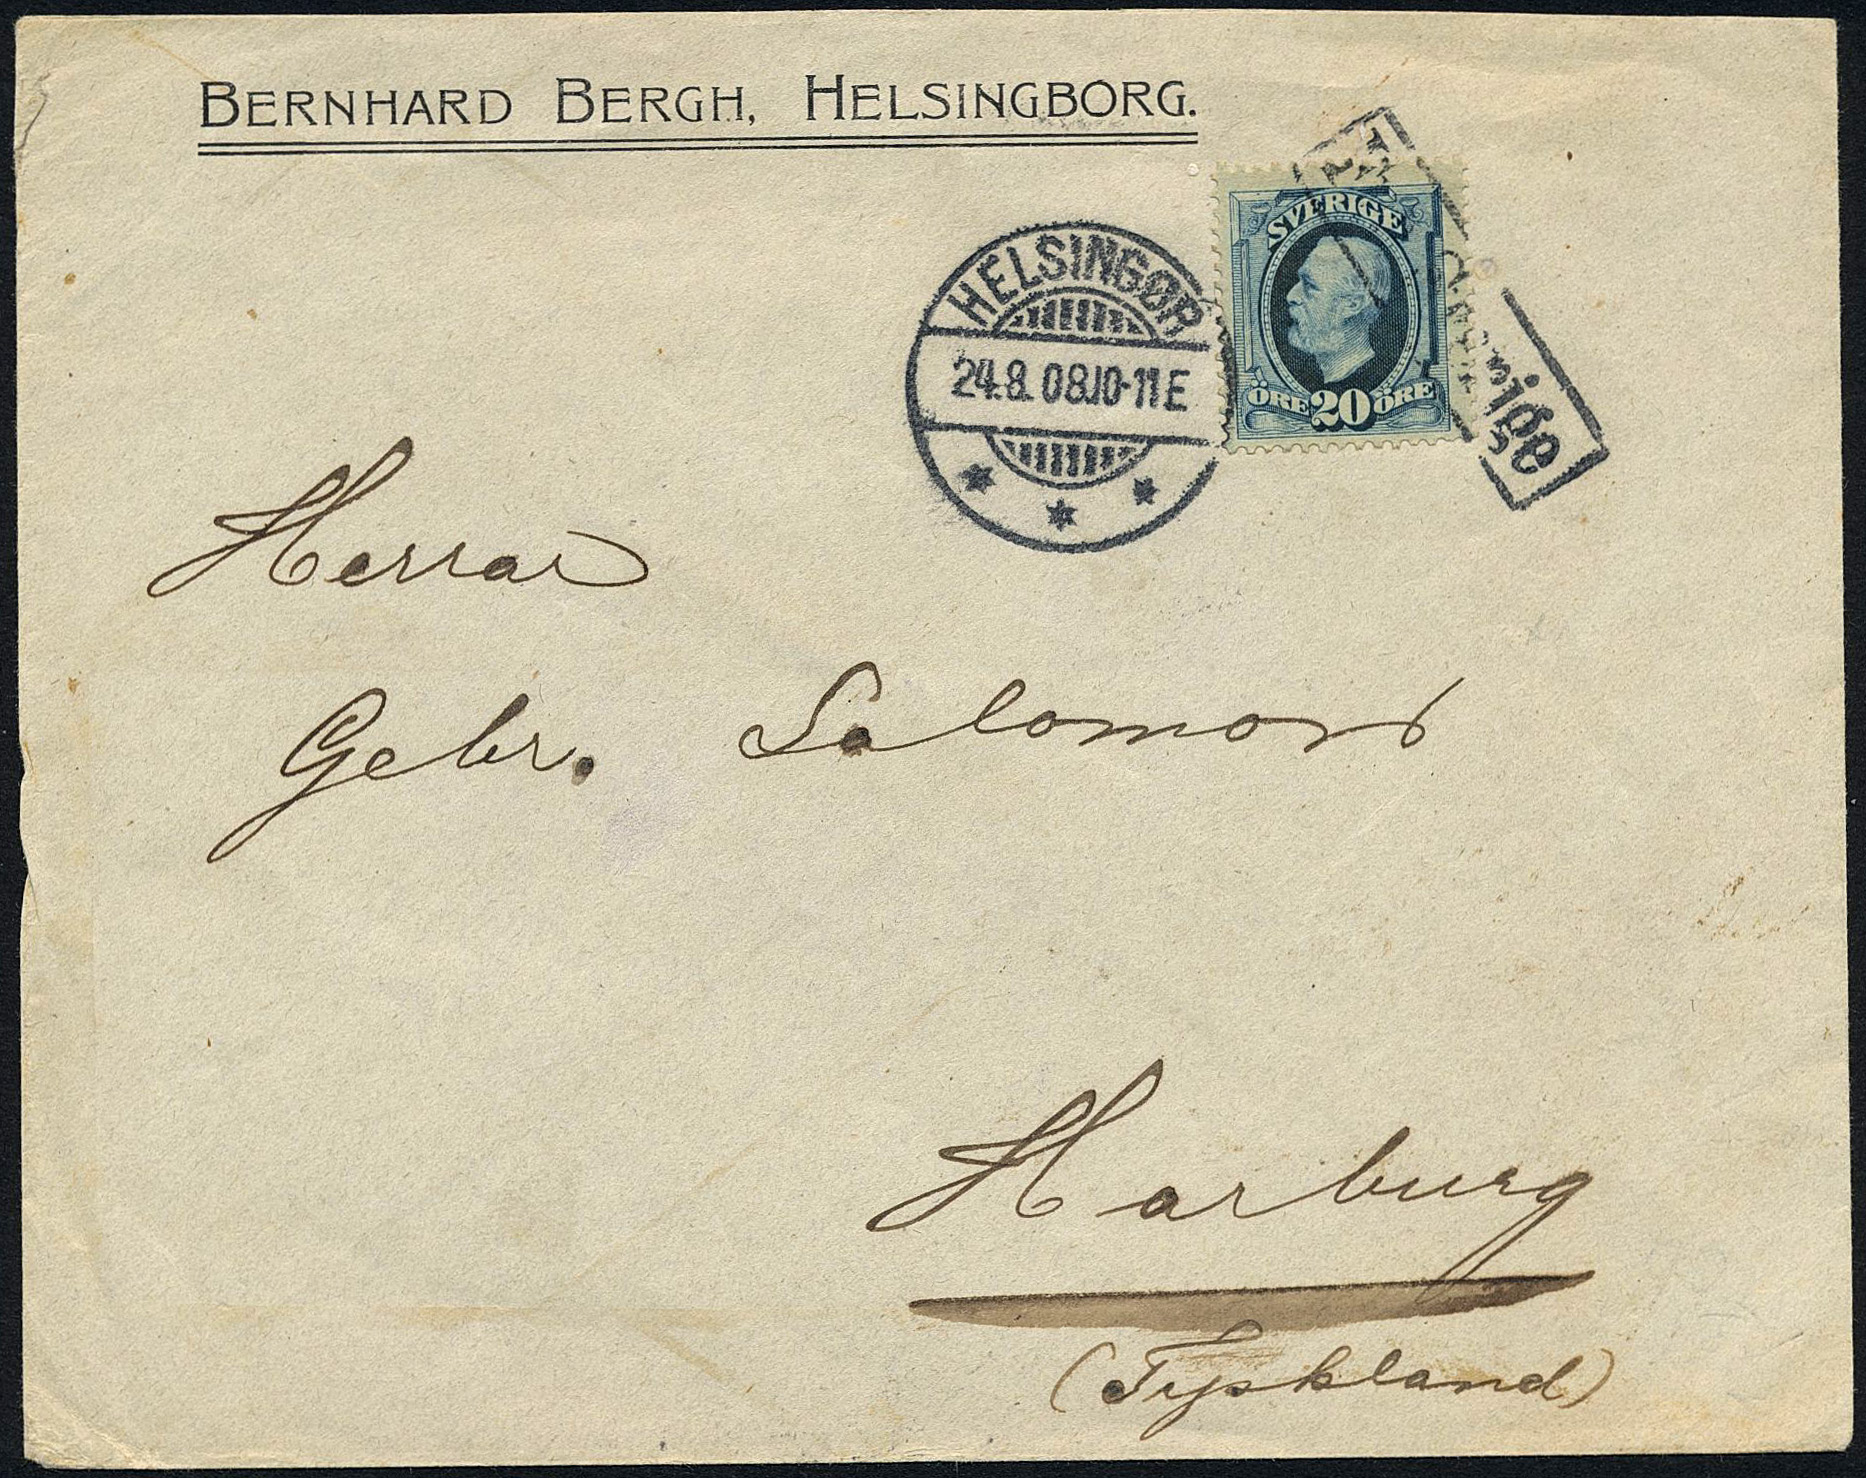 BERNHARD BERGH, HELSINGBORG.
HELSINGØR
24.8.08.10-11E
Fra Sverige
SVERIGE
ÖRE 20 ÖRE
Herrar
Gebr. Salomon
Harburg
(Tyskland)